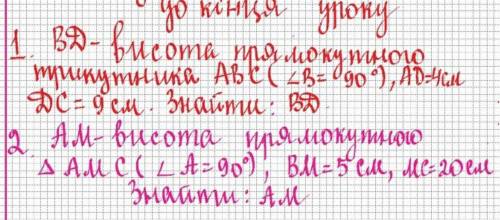 до кінця уроку
1. BD - висота прямокутного
трикутника ABC (∠B = 90°), AD = 4 см
DC = 9 см. Знайти: BD.
2. AM - висота прямокутного
△ AMC (∠A = 90°), BM = 5 см, MC = 20 см
Знайти: AM